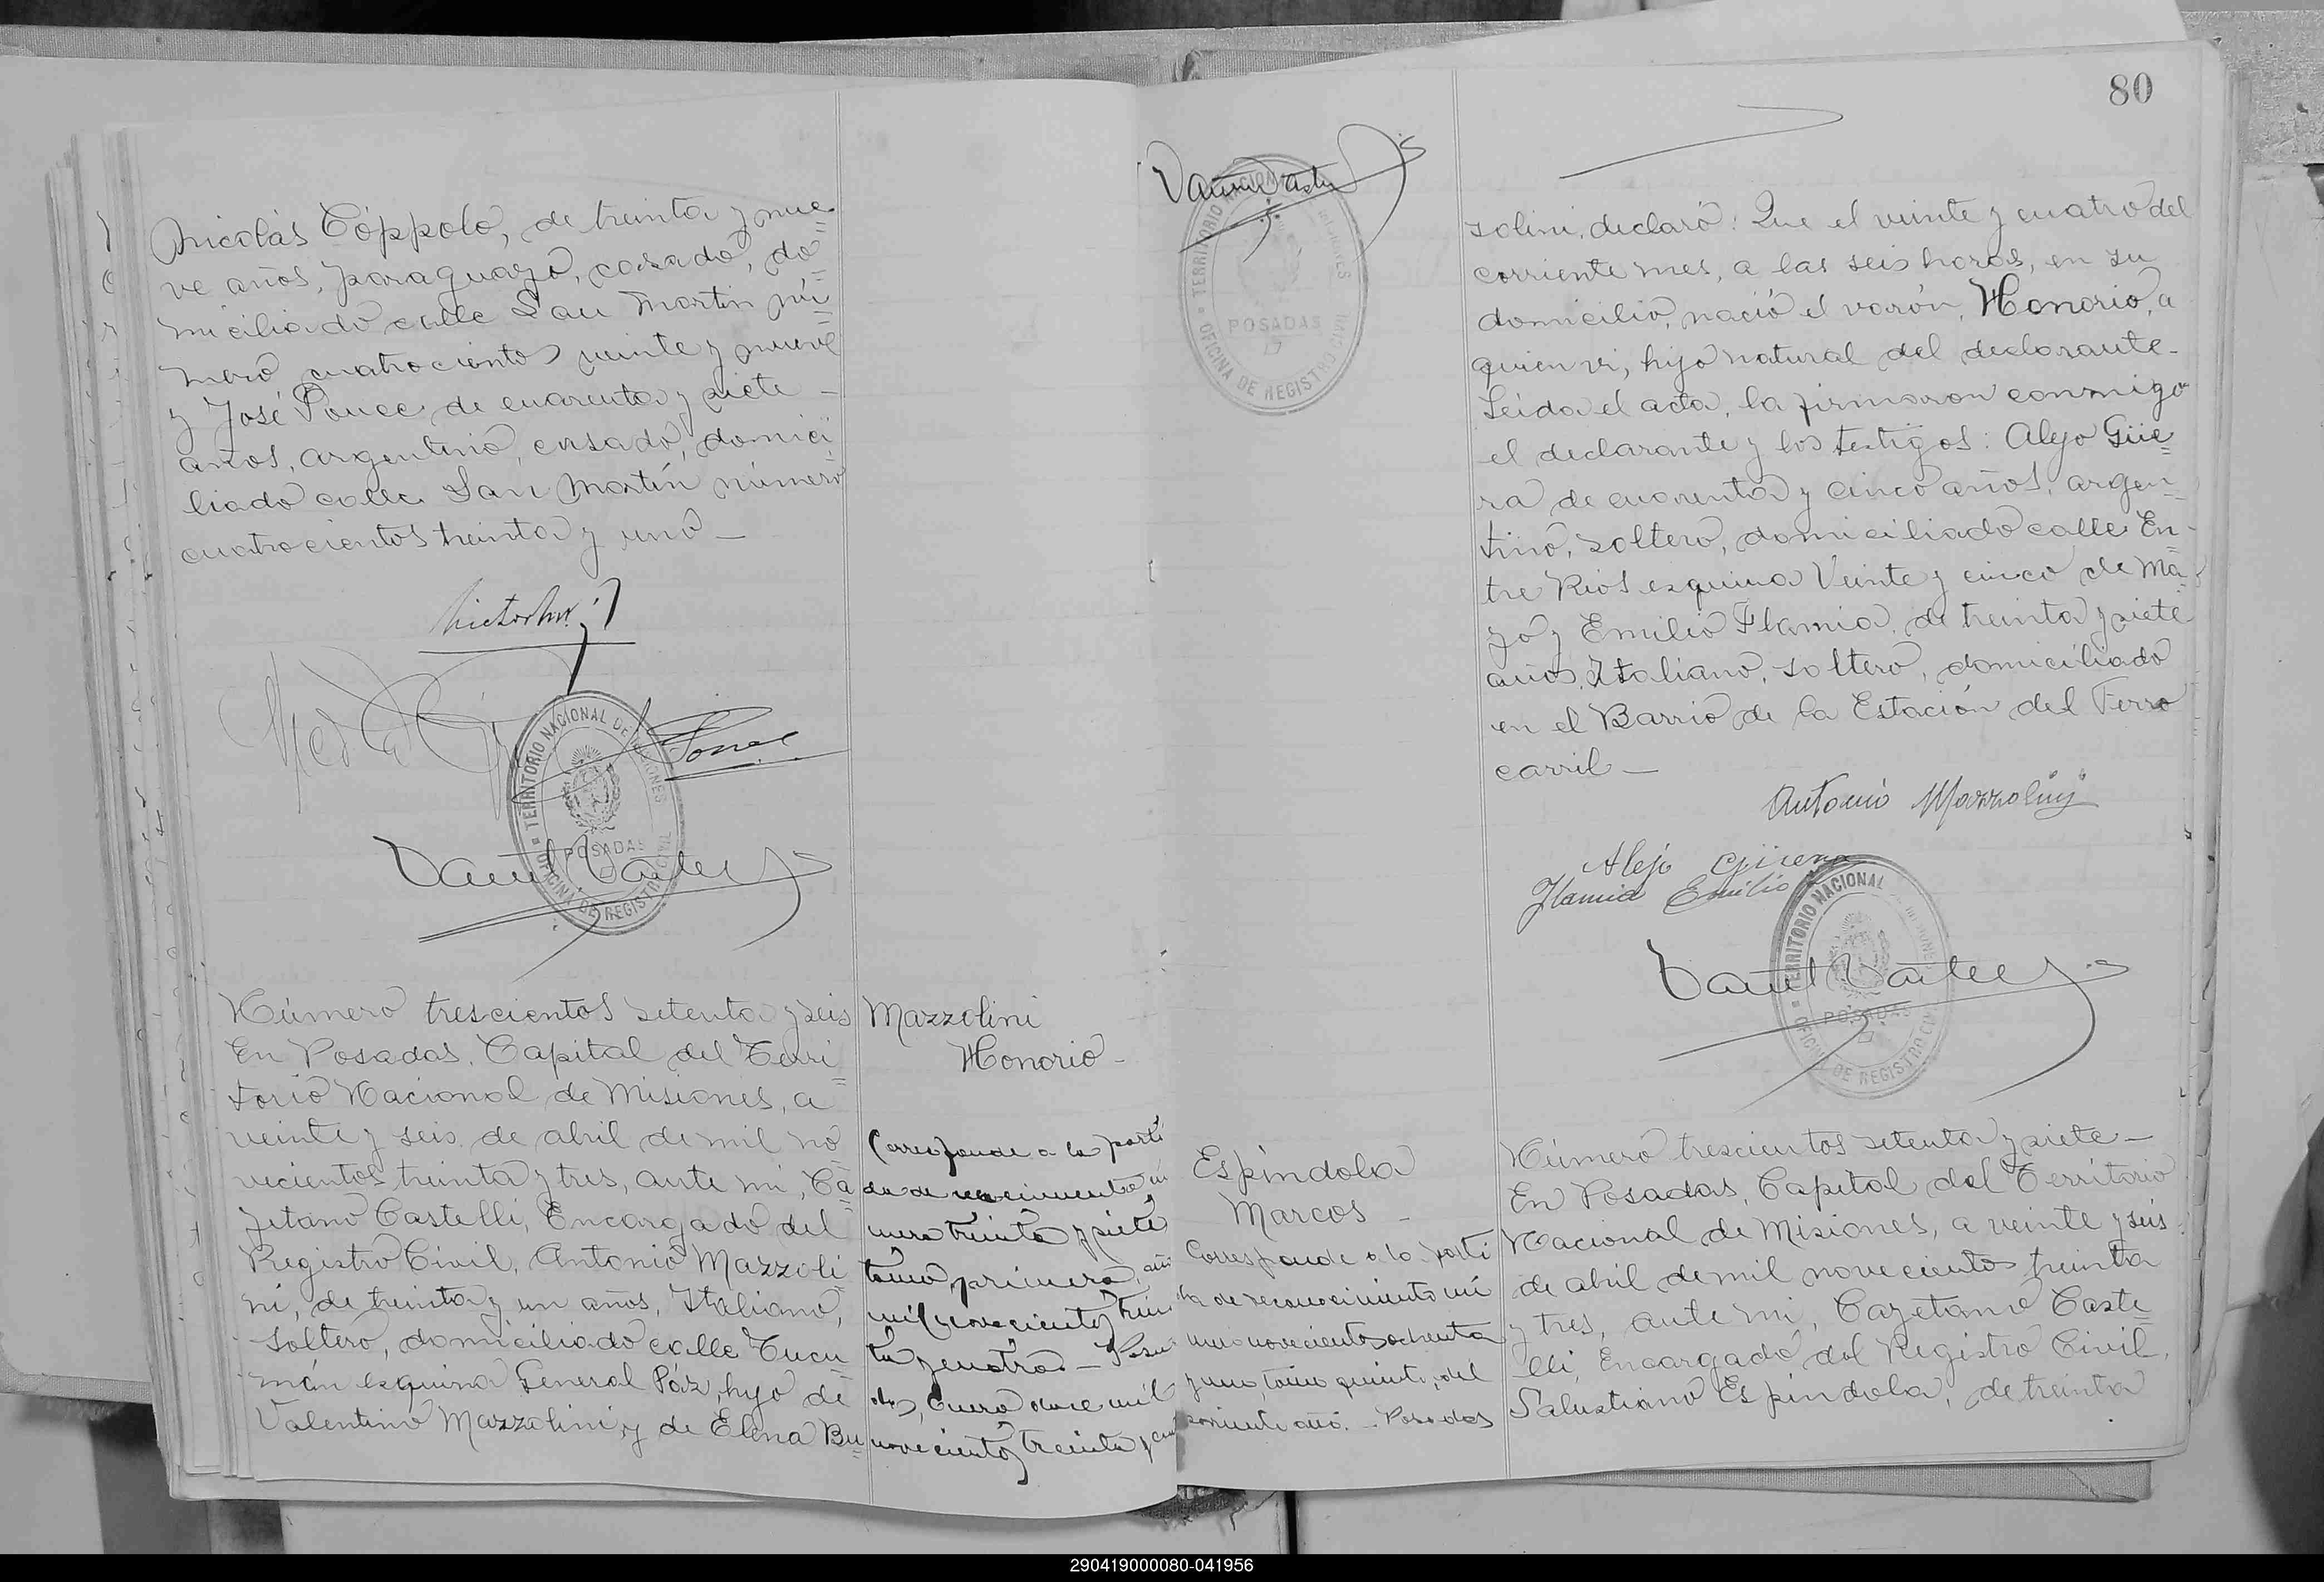 Nicolás Cóppolo, de treinta y nue=
ve años, paraguayo, casado, do=
miciliado calle San Martin nú=
mero cuatrocientos veinte y nueve
y José Ponce, de cuarenta y siete -
años, argentino, casado, domici=
liado calle San Martín número
cuatrocientos treinta y uno -
TERRITORIO NACIONAL DE MISIONES
POSADAS
OFICINA DE REGISTRO CIVIL
Número trescientos setenta y seis
En Posadas, Capital del Terri=
torio Nacional de Misiones, a
veinte y seis de abril de mil no=
vecientos treinta y tres, ante mi, Ca=
yetano Castelli, Encargado del
Registro Civil, Antonio Mazzoli=
ni, de treinta y un años, Italiano,
soltero, domiciliado calle Tucu=
mán esquina General Páz, hijo de
Valentino Mazzolini y de Elena Bu=
Mazzolini
Honorio -
Corresponde a la parti
da de reconocimiento nú
mero treinta y siete
tomo primero, año
mil novecientos trein
ta y cuatro - Posa
das, Enero doce mil
novecientos treinta y cua
80
TERRITORIO NACIONAL DE MISIONES
POSADAS
OFICINA DE REGISTRO CIVIL
zolini, declaró: Que el veinte y cuatro del
corriente mes, a las seis horas, en su
domicilio, nació el varón, Honorio, a
quien vi, hijo natural del declarante -
Leida el acta, la firmaron conmigo
el declarante y los testigos: Alejo Güe=
ra de cuarenta y cinco años, argen=
tino, soltero, domiciliado calle En=
tre Rios esquina Veinte y cinco de Ma=
yo y Emilio Flamia, de treinta y siete
años, Italiano, soltero, domiciliado
en el Barrio de la Estación del Ferro
carril -
Antonio Mazzolini
Alejo Güera
Flamia Emilio
TERRITORIO NACIONAL DE MISIONES
POSADAS
OFICINA DE REGISTRO CIVIL
Espíndola
Marcos -
Corresponde a la parti
da de reconocimiento nú
mero novecientos ochenta
y uno, tomo quinto, del
corriente año. - Posadas
Número trescientos setenta y siete -
En Posadas, Capital del Territorio
Nacional de Misiones, a veinte y seis
de abril de mil novecientos treinta
y tres, ante mi, Cayetano Caste=
lli, Encargado del Registro Civil,
Salustiano Espíndola, de treinta
290419000080-041956